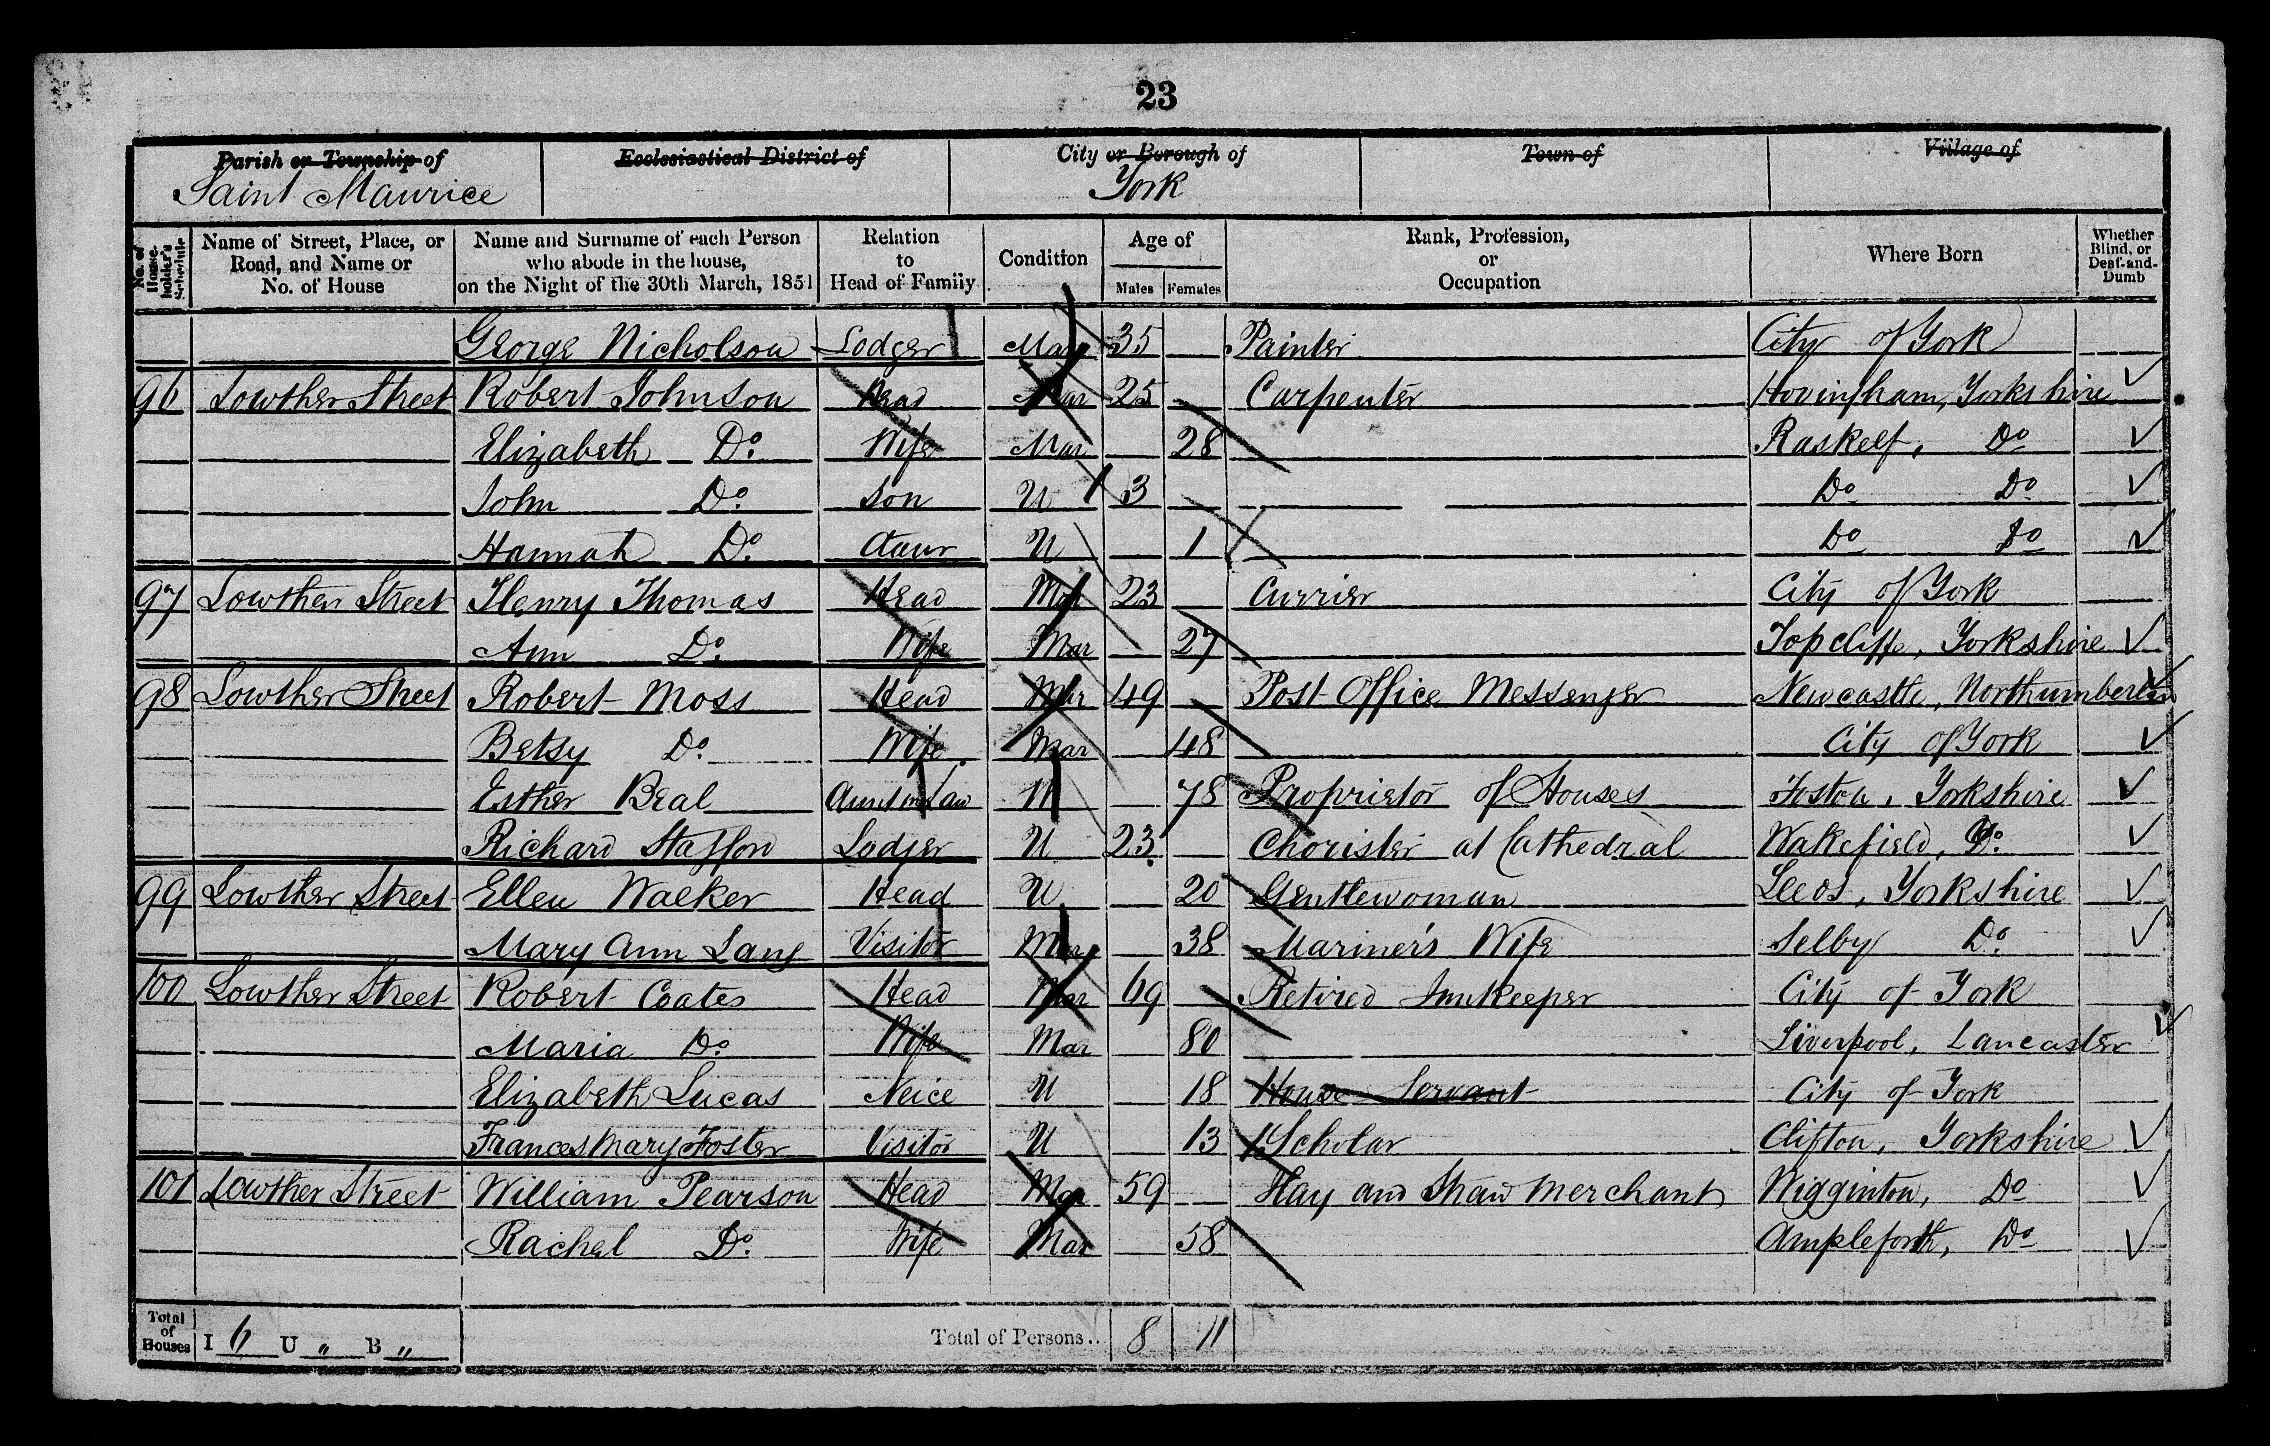 23
Parish or Township of Ecclesiastical District of City or Borough of Town of Village of
Saint Maurice York
No. of House-holder's Schedule Name of Street, Place, or Road, and Name or No. of House Name and Surname of each Person who abode in the house, on the Night of the 30th March, 1851 Relation to Head of Family Condition Age of Males Females Rank, Profession, or Occupation Where Born Whether Blind, or Deaf-and-Dumb
George Nicholson Lodger Mar 35 Painter City of York
96 Lowther Street Robert Johnson Head Mar 25 Carpenter Hovingham, Yorkshire
Elizabeth Do. Wife Mar 28 Raskelf, Do
John Do. Son U 3 Do Do
Hannah Do. Daur U 1 Do Do
97 Lowther Street Henry Thomas Head Mar 23 Currier City of York
Ann Do. Wife Mar 27 Topcliffe, Yorkshire
98 Lowther Street Robert Moss Head Mar 49 Post Office Messenger Newcastle, Northumberlan
Betsy Do. Wife Mar 48 City of York
Esther Beal Aunt in Law U 78 Proprietor of Houses Foston, Yorkshire
Richard Stafford Lodger U 23 Chorister at Cathedral Wakefield, Do.
99 Lowther Street Ellen Walker Head U 20 Gentlewoman Leeds, Yorkshire
Mary Ann Lang Visitor Mar 38 Mariner's Wife Selby Do.
100 Lowther Street Robert Coates Head Mar 69 Retired Innkeeper City of York
Maria Do. Wife Mar 80 Liverpool, Lancaster
Elizabeth Lucas Neice U 18 House Servant City of York
Frances Mary Foster Visitor U 13 Scholar Clifton, Yorkshire
101 Lowther Street William Pearson Head Mar 59 Hay and Straw Merchant Wigginton, Do
Rachel Do. Wife Mar 58 Ampleforth, Do
Total of Houses I 6 U „ B „ Total of Persons.. 8 11